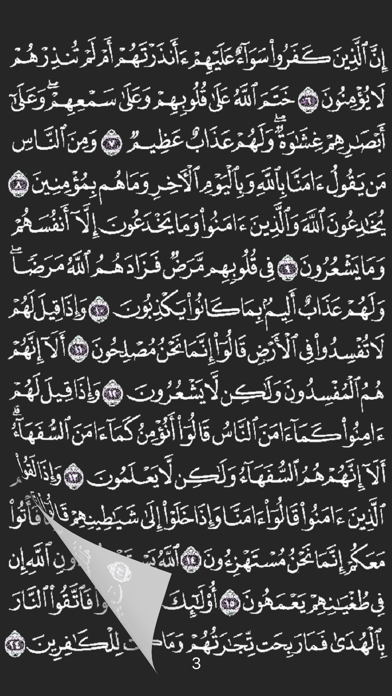 إِنَّ ٱلَّذِينَ كَفَرُوا۟ سَوَآءٌ عَلَيْهِمْ ءَأَنذَرْتَهُمْ أَمْ لَمْ تُنذِرْهُمْ
لَا يُؤْمِنُونَ ٦ خَتَمَ ٱللَّهُ عَلَىٰ قُلُوبِهِمْ وَعَلَىٰ سَمْعِهِمْ ۖ وَعَلَىٰٓ
أَبْصَـٰرِهِمْ غِشَـٰوَةٌ ۖ وَلَهُمْ عَذَابٌ عَظِيمٌ ٧ وَمِنَ ٱلنَّاسِ
مَن يَقُولُ ءَامَنَّا بِٱللَّهِ وَبِٱلْيَوْمِ ٱلْـَٔاخِرِ وَمَا هُم بِمُؤْمِنِينَ ٨
يُخَـٰدِعُونَ ٱللَّهَ وَٱلَّذِينَ ءَامَنُوا۟ وَمَا يَخْدَعُونَ إِلَّآ أَنفُسَهُمْ
وَمَا يَشْعُرُونَ ٩ فِى قُلُوبِهِم مَّرَضٌ فَزَادَهُمُ ٱللَّهُ مَرَضًا ۖ
وَلَهُمْ عَذَابٌ أَلِيمٌۢ بِمَا كَانُوا۟ يَكْذِبُونَ ١٠ وَإِذَا قِيلَ لَهُمْ
لَا تُفْسِدُوا۟ فِى ٱلْأَرْضِ قَالُوٓا۟ إِنَّمَا نَحْنُ مُصْلِحُونَ ١١ أَلَآ إِنَّهُمْ
هُمُ ٱلْمُفْسِدُونَ وَلَـٰكِن لَّا يَشْعُرُونَ ١٢ وَإِذَا قِيلَ لَهُمْ
ءَامِنُوا۟ كَمَآ ءَامَنَ ٱلنَّاسُ قَالُوٓا۟ أَنُؤْمِنُ كَمَآ ءَامَنَ ٱلسُّفَهَآءُ ۗ
أَلَآ إِنَّهُمْ هُمُ ٱلسُّفَهَآءُ وَلَـٰكِن لَّا يَعْلَمُونَ ١٣ وَإِذَا لَقُوا۟
ٱلَّذِينَ ءَامَنُوا۟ قَالُوٓا۟ ءَامَنَّا وَإِذَا خَلَوْا۟ إِلَىٰ شَيَـٰطِينِهِمْ قَالُوٓا۟ فَأْتُوا۟
مَعَكُمْ إِنَّمَا نَحْنُ مُسْتَهْزِءُونَ ١٤ ٱللَّهُ ٱللَّهِ إِن
فِى طُغْيَـٰنِهِمْ يَعْمَهُونَ ١٥ أُو۟لَـٰٓئِكَ فَٱتَّقُوا۟ ٱلنَّارَ
بِٱلْهُدَىٰ فَمَا رَبِحَت تِّجَـٰرَتُهُمْ وَمَا لِلْكَـٰفِرِينَ ٢٤
3